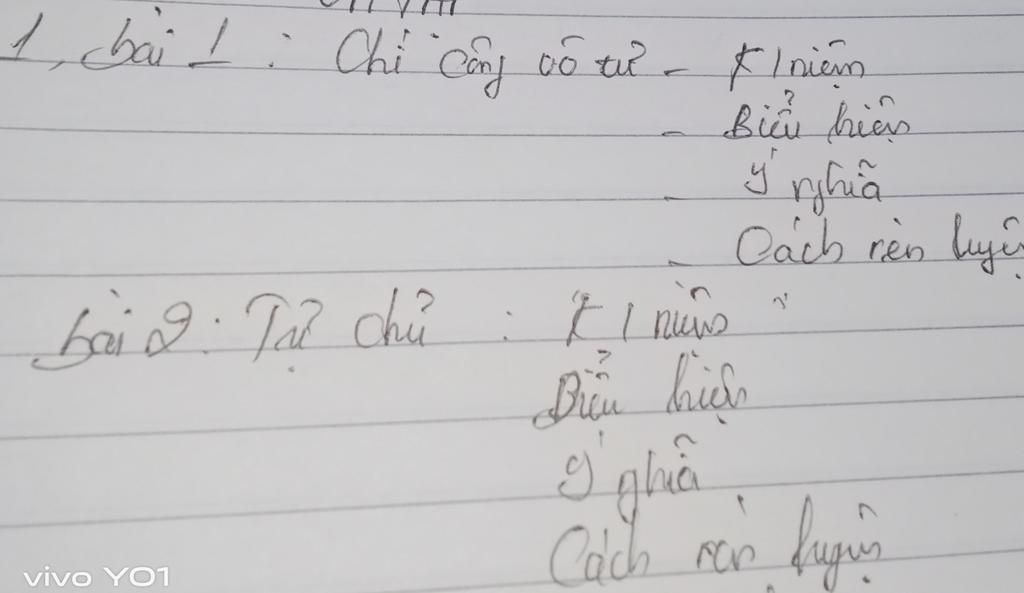 1, bài 1 : Chí công vô tư - K/niệm
- Biểu hiện
- Ý nghĩa
- Cách rèn luyệ
bài 2 : Tự chủ : K/niệm
Biểu hiện
Ý ghĩa
Cách rèn luyện
vivo Y01